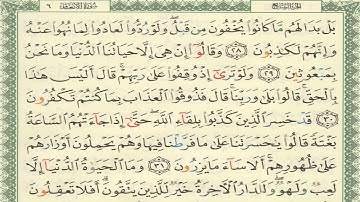 الجزء السابع سورة الأنعام ٦
بَلْ بَدَا لَهُم مَّا كَانُوا يُخْفُونَ مِن قَبْلُ وَلَوْ رُدُّوا لَعَادُوا لِمَا نُهُوا عَنْهُ
وَإِنَّهُمْ لَكَاذِبُونَ ﴿٢٨﴾ وَقَالُوا إِنْ هِيَ إِلَّا حَيَاتُنَا الدُّنْيَا وَمَا نَحْنُ
بِمَبْعُوثِينَ ﴿٢٩﴾ وَلَوْ تَرَىٰ إِذْ وُقِفُوا عَلَىٰ رَبِّهِمْ قَالَ أَلَيْسَ هَٰذَا
بِالْحَقِّ قَالُوا بَلَىٰ وَرَبِّنَا قَالَ فَذُوقُوا الْعَذَابَ بِمَا كُنتُمْ تَكْفُرُونَ
﴿٣٠﴾ قَدْ خَسِرَ الَّذِينَ كَذَّبُوا بِلِقَاءِ اللَّهِ حَتَّىٰ إِذَا جَاءَتْهُمُ السَّاعَةُ
بَغْتَةً قَالُوا يَا حَسْرَتَنَا عَلَىٰ مَا فَرَّطْنَا فِيهَا وَهُمْ يَحْمِلُونَ أَوْزَارَهُمْ
عَلَىٰ ظُهُورِهِمْ أَلَا سَاءَ مَا يَزِرُونَ ﴿٣١﴾ وَمَا الْحَيَاةُ الدُّنْيَا إِلَّا
لَعِبٌ وَلَهْوٌ وَلَلدَّارُ الْآخِرَةُ خَيْرٌ لِّلَّذِينَ يَتَّقُونَ أَفَلَا تَعْقِلُونَ